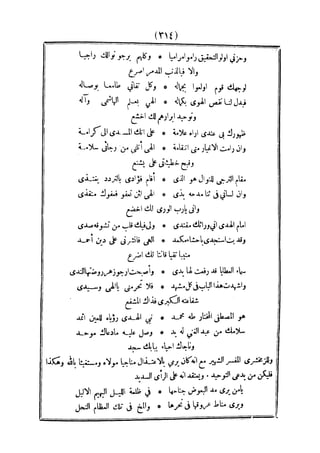 (٣١٤)
وحزني اولوا التحقيق راموا مراميا * وكلهم يرجو نوالك راجيا
والا فبالذنب المدمر اصرع
لوجهك قوم اولعوا بجماله * وكل تفانى طامعا بوصاله
فبدل لنا نقص الهوى بكماله * الهي بحلم الهاشمي وآله
وتوحيد ابرارهم لك اخشع
ظهورك بي عندى اراه علامة * على انك المسدى الى كرامة
وان رامت الاغيار منى انتقامة * الهى أنلني من رجائى سلامة
وقبح خطيئتى على يشنع
مقام الترجى للنوال هو الذى * أقام فؤادى بالتردد يغتذى
وان لسانى في ثنا مدحه بذى * الهى لئن تعفو فعفوك منقذى
وانى يارب الورى لك اخضع
امام الهدى انى ورائك مقتدى * ولى فيك قلب من تشوقه صدى
وقد بت استجدى باحشاء مكمد * الهى فانشرنى على دين أحمد
منيبا تقيا قانتا لك اضرع
سماء العطايا قد رفعت لها يدى * وأصبحت ارجو زهر روضتها الندى
واشهدت هذا الباب فى كل مشهد * فلا تحرمنى ياالهى وسيدى
شفاعته الكبرى فذاك المشفع
هو المصطفى المختار طه محمد * نبى الهدى رؤياه للعين اثمد
سلامك من عبد الغنى له يد * وصل عليه مادعاك موحد
وناجاك اخيار ببابك سجد
وللزمخشرى المفسر الشهير مع انه كان يرمى بالاعتزال مناجيا مولاه ومستغيثا بالله وهكذا
فليكن من يدعى التوحيد . ويعتقد انه على الرأى السديد
يامن يرى مد البعوض جناحها * في ظلمة الليل البهيم الاليل
ويرى مناط عروقها فى نحرها * والمخ فى تلك العظام النحل